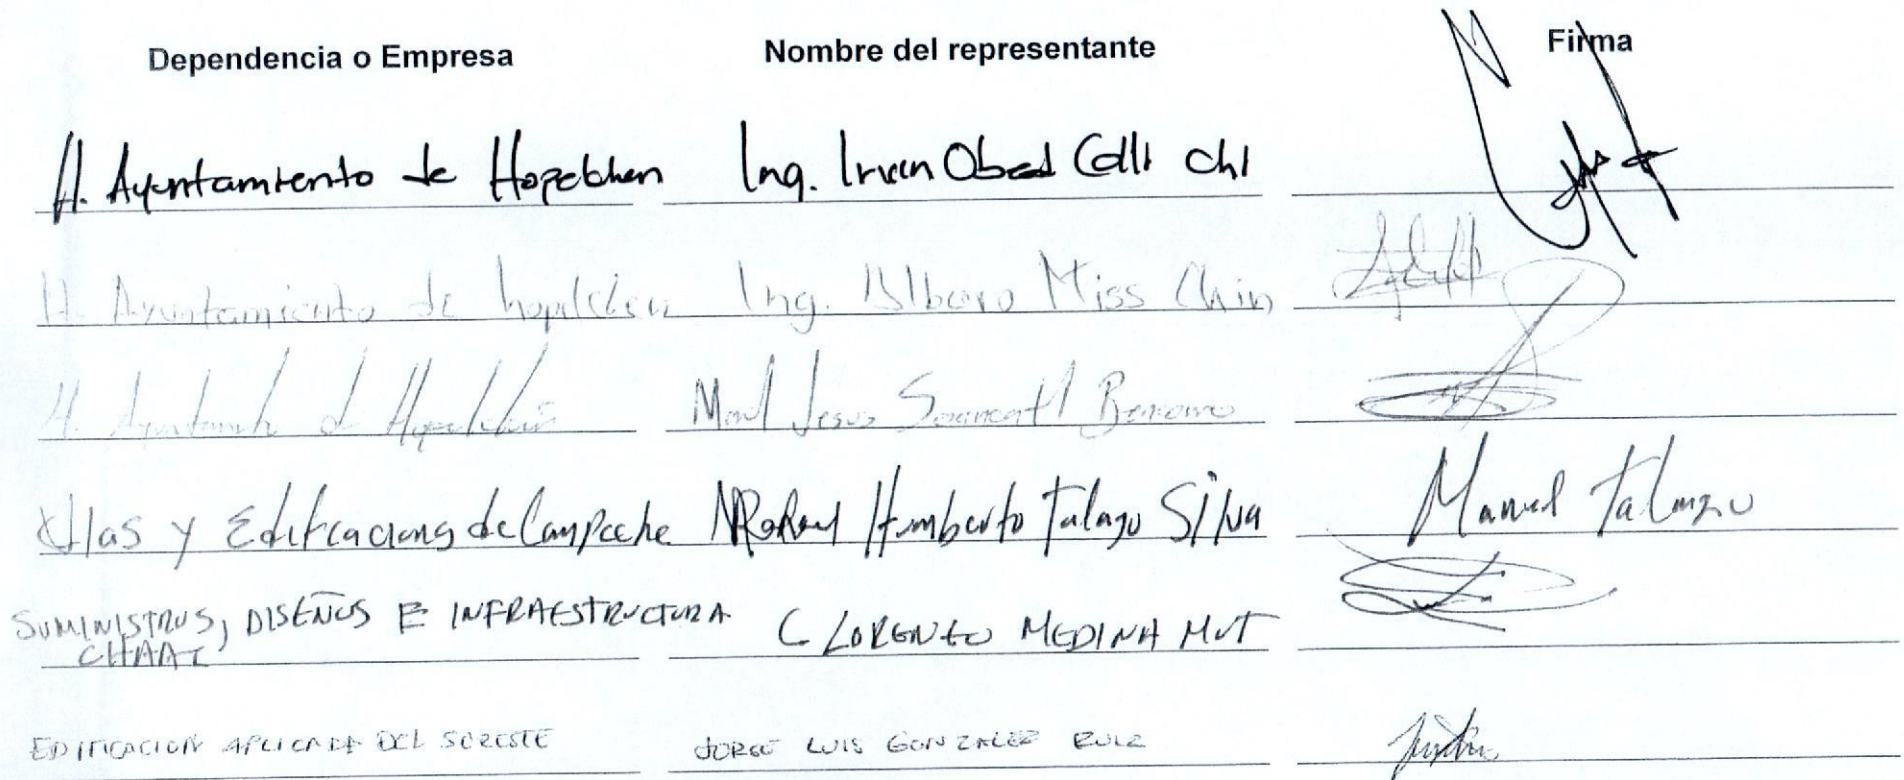 Dependencia o Empresa Nombre del representante Firma
H. Ayuntamiento de Hopelchen Ing. Irvin Obed Colli Chi
H. Ayuntamiento de hopelchen Ing. Albaro Miss Chin
H. Ayuntamiento de Hopelchén Jesus
y Edificaciones de Campeche Humberto Talango Silva Manuel Talango
SUMINISTROS, DISEÑOS E INFRAESTRUCTURA C LORENZO MEDINA MUT
CHAAC
EDIFICACION APLICADA DEL SURESTE JORGE LUIS GONZALEZ RUIZ